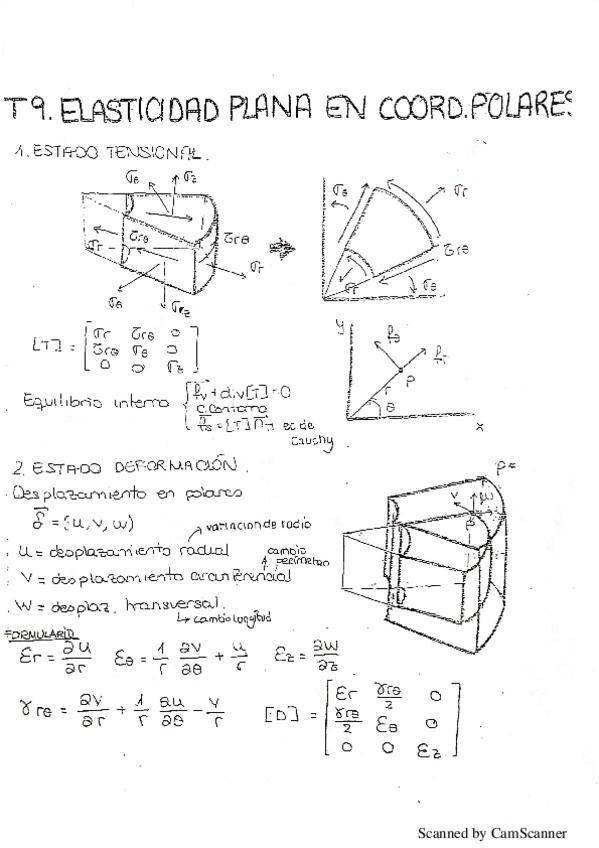 T9. ELASTICIDAD PLANA EN COORD. POLARES
1. ESTADO TENSIONAL.
σθ σz
σr τrθ τrθ σr
σθ σz
σθ σr
τrθ
σr σθ
[T] = [σr τrθ 0
τrθ σθ 0
0 0 σz]
y fθ fr
P
r
θ
x
Equilibrio interno { fv + div[T] = 0
C. Contorno
fs = [T] n → ec de
Cauchy
2. ESTADO DEFORMACIÓN.
P =
Desplazamiento en polares
δ = (u, v, w)
v w
P
u = desplazamiento radial → variacion de radio
V = desplazamiento circunferencial cambio perimetro
W = desplaz. transversal.
↳ cambio longitud
FORMULARIO
εr = ∂u/∂r εθ = 1/r ∂v/∂θ + u/r εz = ∂w/∂z
γrθ = ∂v/∂r + 1/r ∂u/∂θ - v/r [D] = [εr γrθ/2 0
γrθ/2 εθ 0
0 0 εz]
Scanned by CamScanner